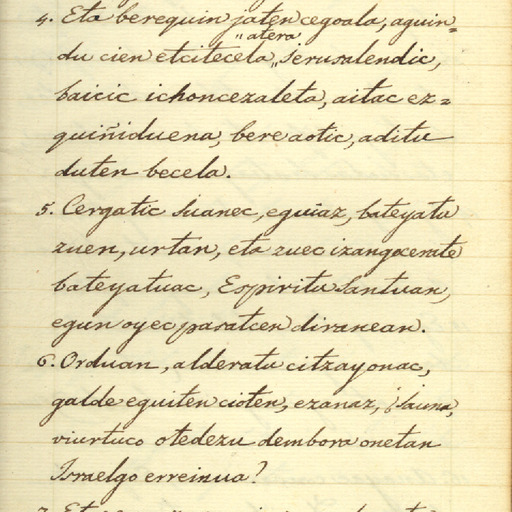 4. Eta berequin jaten cegoala, aguin=
du cien etcitecela "atera" Jerusalendic,
baicic ichoncezaleta, aitac ez=
quiñiduena, bere aotic, aditu
duten becela.
5. Cergatic Juanec, eguiaz, bateyatu
zuen, urtan, eta zuec izangocerate
bateyatuac, Espiritu Santuan,
egun oyec pasatcen diranean.
6. Orduan, alderatu citzayonac,
galde eguiten cioten, ezanaz, ¿Jauna,
viurtuco otedezu dembora onetan
Israelgo erreinua?